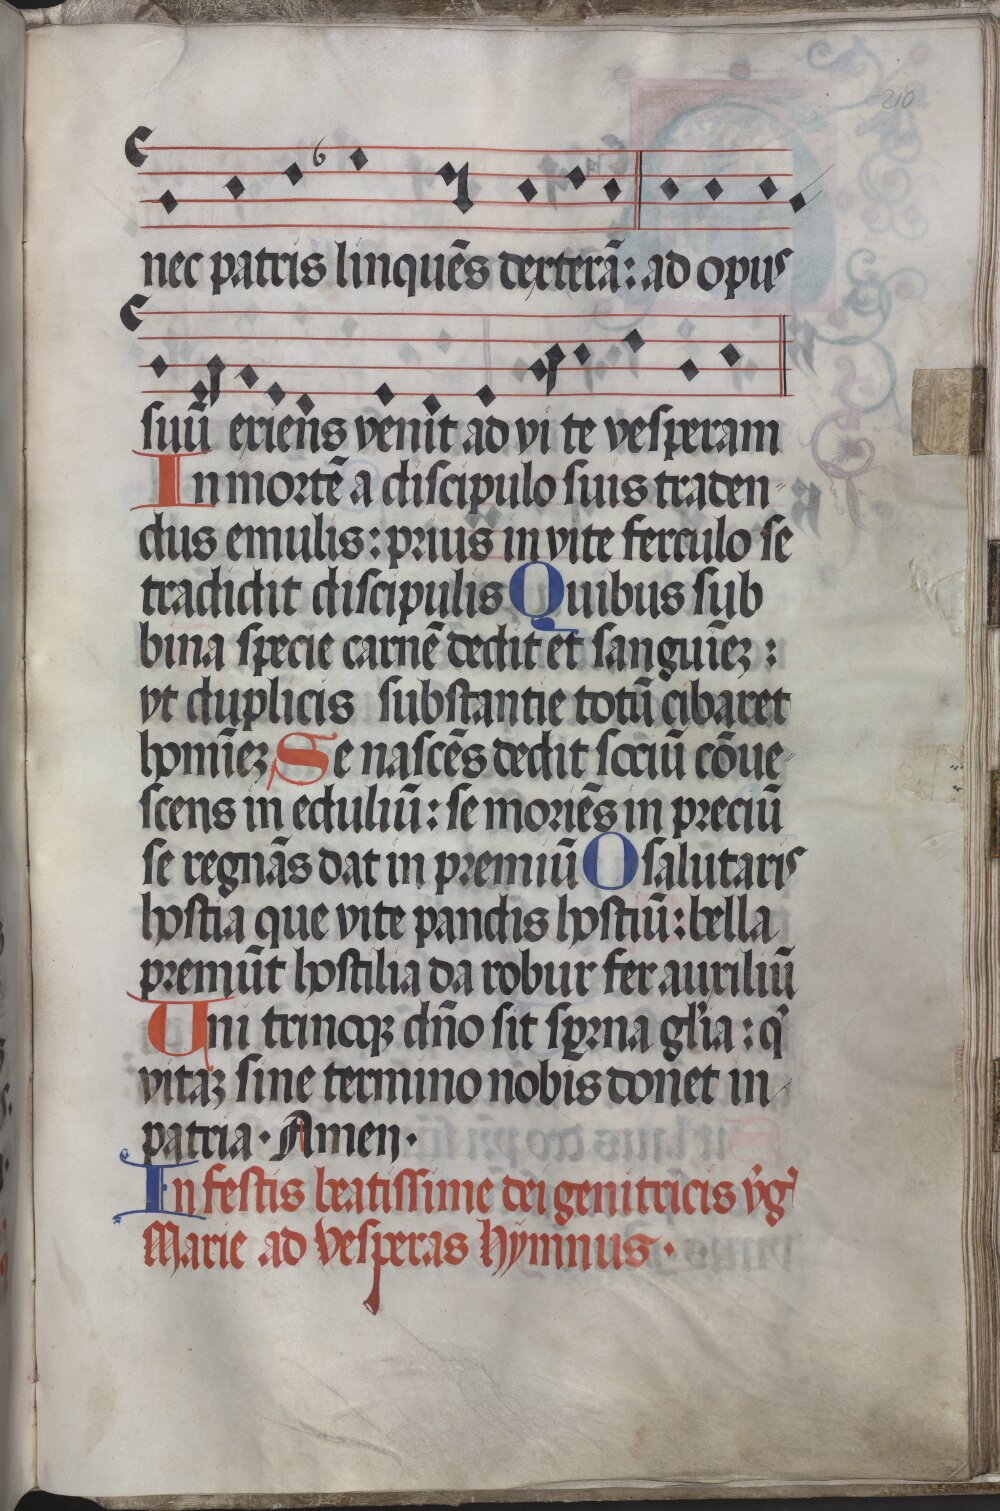 210
nec patris linquēs dexterā: ad opus
suū exiens venit ad vi te vesperam
In mortē a discipulo suis traden
dus emulis: prius in vite ferculo se
tradidit discipulis Quibus sub
bina specie carnē dedit et sanguīeꝫ:
vt duplicis substantie totū cibaret
homīeꝫ Se nascēs dedit sociū cōue
scens in eduliū: se moriēs in preciū
se regnās dat in premiū O salutaris
hostia que vite pandis hostiū: bella
premūt hostilia da robur fer auxiliū
Uni trinoqꝫ dño sit sꝑna gl'ia: q'
vitaꝫ sine termino nobis donet in
patria · Amen ·
In festis beatissime dei genitricis v̇g'
Marie ad vesperas Hymnus ·